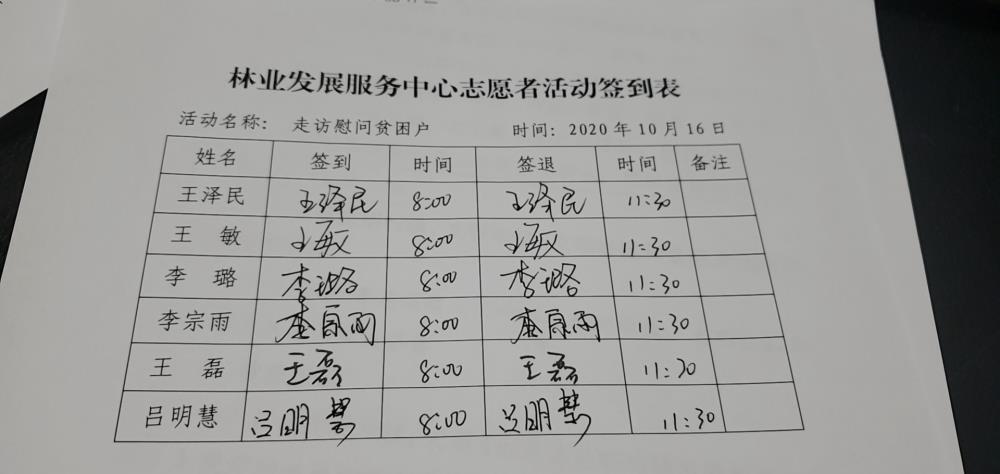 林业发展服务中心志愿者活动签到表
活动名称： 走访慰问贫困户 时间：2020年10月16日
姓名 签到 时间 签退 时间 备注
王泽民 王泽民 8:00 王泽民 11:30
王 敏 王敏 8:00 王敏 11:30
李 璐 李璐 8:00 李璐 11:30
李宗雨 李宗雨 8:00 李宗雨 11:30
王 磊 王磊 8:00 王磊 11:30
吕明慧 吕明慧 8:00 吕明慧 11:30